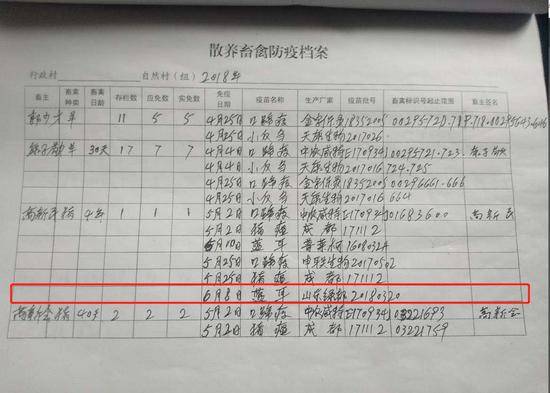 散养畜禽防疫档案
行政村 自然村（组）2018年
畜主 畜禽种类 畜禽日龄 存栏数 应免数 实免数 免疫日期 疫苗名称 生产厂家 疫苗批号 畜禽标识号起止范围 畜主签名
羊 11 5 5 4月25日 口蹄疫 18352005
4月25日 小反刍 天康生物 2017026
羊 30天 17 7 7 4月4日 口蹄疫 中农威特 E170934J 00295721.723
4月4日 小反刍 天康生物 2017016 724.725
4月25日 口蹄疫 18352005 00296661.666
4月25日 小反刍 天康生物 2017016 664
高新 猪 1 1 1 5月2日 口蹄疫 中农威特 E170934J 01683600 高新
5月2日 猪瘟 成都 171112
5月10日 蓝耳 普莱柯 1608032A
口蹄疫 申联生物 20170502
5月25日 猪瘟 成都 171112
6月8日 蓝耳 山东绿都 20180320
高新 猪 40天 2 2 2 5月2日 口蹄疫 中农威特 E170934J 03221693 高新
5月2日 猪瘟 成都 171112 03221759